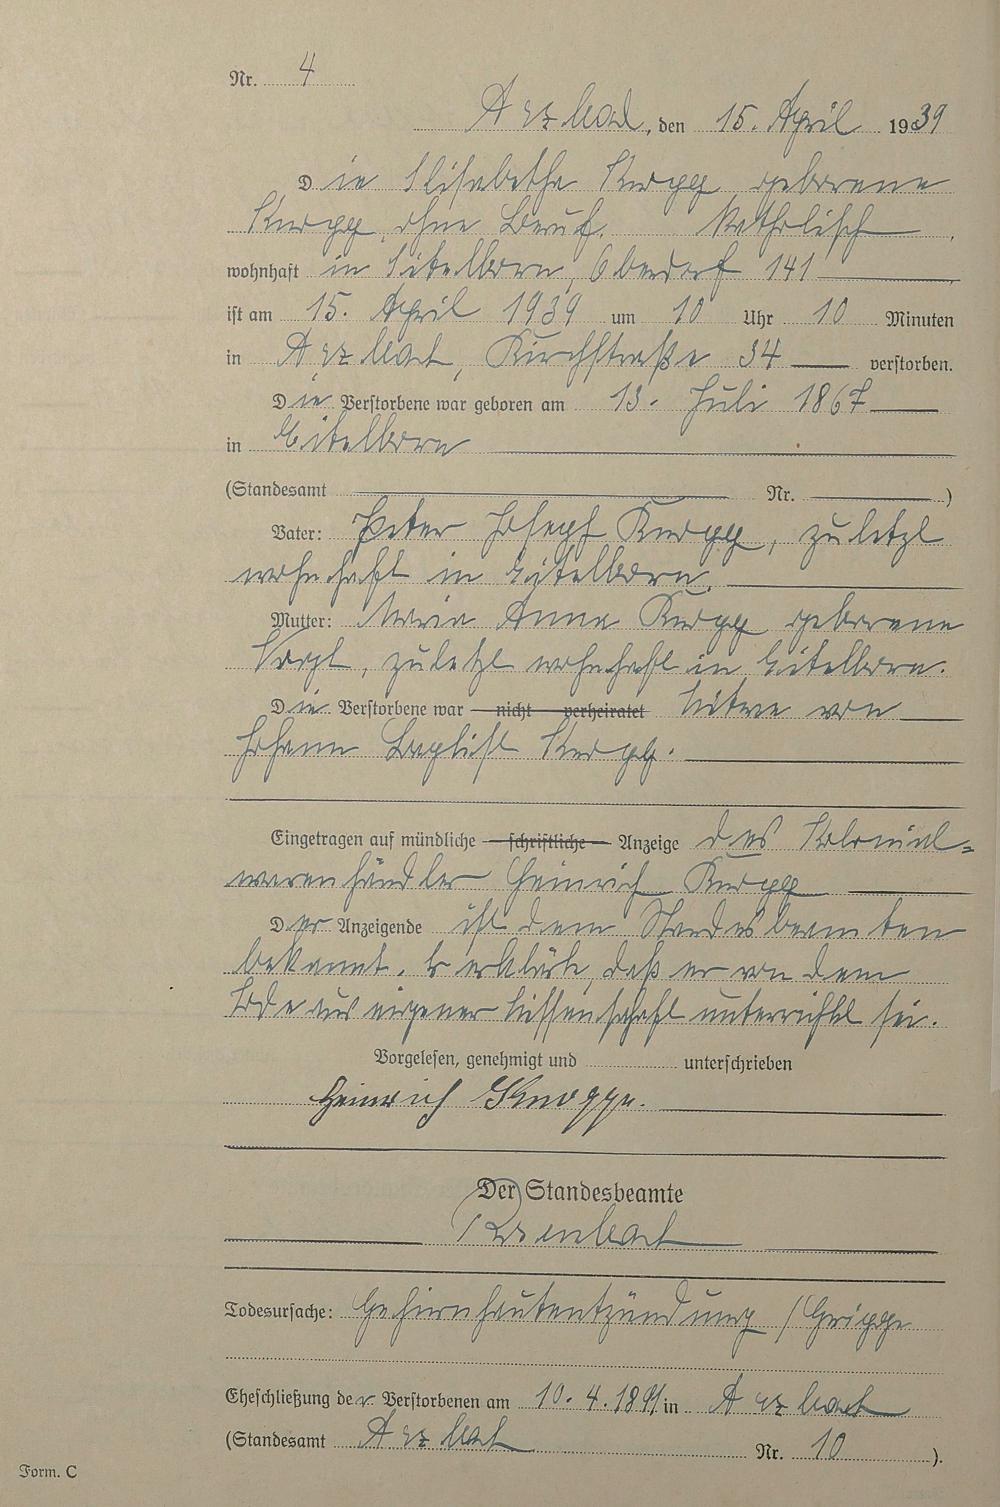 Nr. 4
Arzbach, den 15. April 1939
Die Elisabetha Knopp geborene
Knopp, ohne Beruf. Katholisch,
wohnhaft in Eitelborn, Oberdorf 141
ist am 15. April 1939 um 10 Uhr 10 Minuten
in Arzbach, Kirchstraße 34 verstorben.
Die Verstorbene war geboren am 13. Juli 1867
in Eitelborn
(Standesamt Nr. )
Vater: Peter Joseph Knopp, zuletzt
wohnhaft in Eitelborn.
Mutter: Maria Anna Knopp geborene
zuletzt wohnhaft in Eitelborn.
Die Verstorbene war nicht verheiratet Witwe von
Johann Baptist Knopp.
Eingetragen auf mündliche schriftliche Anzeige des Kolonial-
warenhändler Heinrich Knopp
Der Anzeigende ist dem Standesbeamten
bekannt. Er erklärte, daß er von dem
Tode aus eigener Wissenschaft unterrichtet sei.
Vorgelesen, genehmigt und unterschrieben
Heinrich Knopp.
Der Standesbeamte
Todesursache: Gehirnhautentzündung / Grippe
Eheschließung der Verstorbenen am 10.4.1891 in Arzbach
(Standesamt Arzbach Nr. 10 ).
Form. C